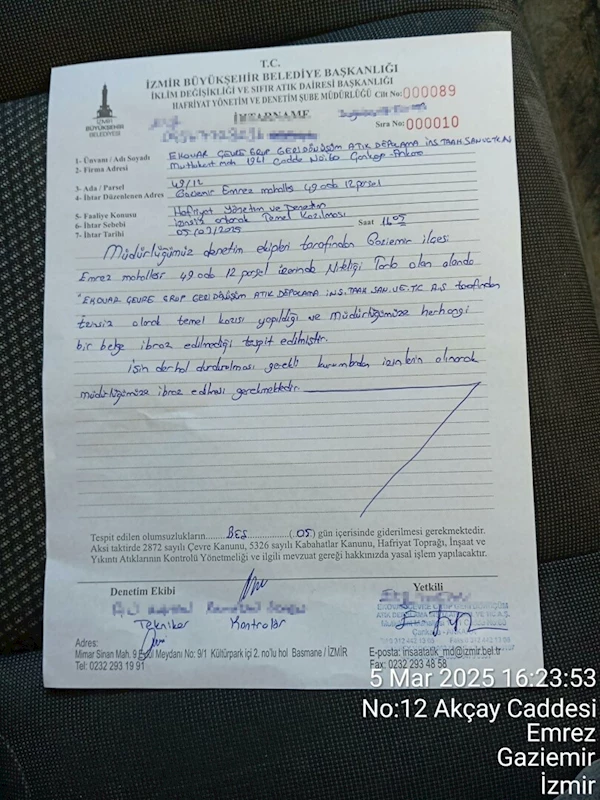 T.C.
İZMİR BÜYÜKŞEHİR BELEDİYE BAŞKANLIĞI
İKLİM DEĞİŞİKLİĞİ VE SIFIR ATIK DAİRESİ BAŞKANLIĞI
HAFRİYAT YÖNETİM VE DENETİM ŞUBE MÜDÜRLÜĞÜ Cilt No: 000089
İHTARNAME
Sıra No: 000010
İZMİR
BÜYÜKŞEHİR
BELEDİYESİ
1- Ünvanı / Adı Soyadı EKOVAR ÇEVRE GRUP GERİ DÖNÜŞÜM ATIK DEPOLAMA İNŞ.TAAH.SAN.VE.TİC.AŞ
2- Firma Adresi Mutlukent mah 1961 Cadde No: Çankaya-Ankara
3- Ada / Parsel 49/12
4- İhtar Düzenlenen Adres Gaziemir Emrez mahallesi 49 ada 12 parsel
5- Faaliye Konusu Hafriyat Yönetim ve Denetim
6- İhtar Sebebi İzinsiz olarak Temel Kazılması
7- İhtar Tarihi 05/03/2025 Saat
Müdürlüğümüz denetim ekipleri tarafından Gaziemir ilçesi
Emrez mahallesi 49 ada 12 parsel üzerinde Niteliği Tarla olan alanda
"EKOVAR ÇEVRE GRUP GERİ DÖNÜŞÜM ATIK DEPOLAMA İNŞ.TAAH.SAN.VE.TİC A.Ş tarafından
izinsiz olarak temel kazısı yapıldığı ve Müdürlüğümüze herhangi
bir belge ibraz edilmediği tespit edilmiştir.
İşin derhal durdurulması gerekli kurumlardan izinlerin alınarak
müdürlüğümüze ibraz edilmesi gerekmektedir.
Tespit edilen olumsuzlukların BEŞ (05) gün içerisinde giderilmesi gerekmektedir.
Aksi taktirde 2872 sayılı Çevre Kanunu, 5326 sayılı Kabahatlar Kanunu, Hafriyat Toprağı, İnşaat ve
Yıkıntı Atıklarının Kontrolü Yönetmeliği ve ilgili mevzuat gereği hakkınızda yasal işlem yapılacaktır.
Denetim Ekibi Yetkili
Tekniker Kontrolör
Adres:
Mimar Sinan Mah. 9 Eylül Meydanı No: 9/1 Kültürpark içi 2. no'lu hol Basmane / İZMİR
Tel: 0232 293 19 91
E-posta: insaatatik_md@izmir.bel.tr
Fax: 0232 293 48 58
5 Mar 2025 16:23:53
No:12 Akçay Caddesi
Emrez
Gaziemir
İzmir